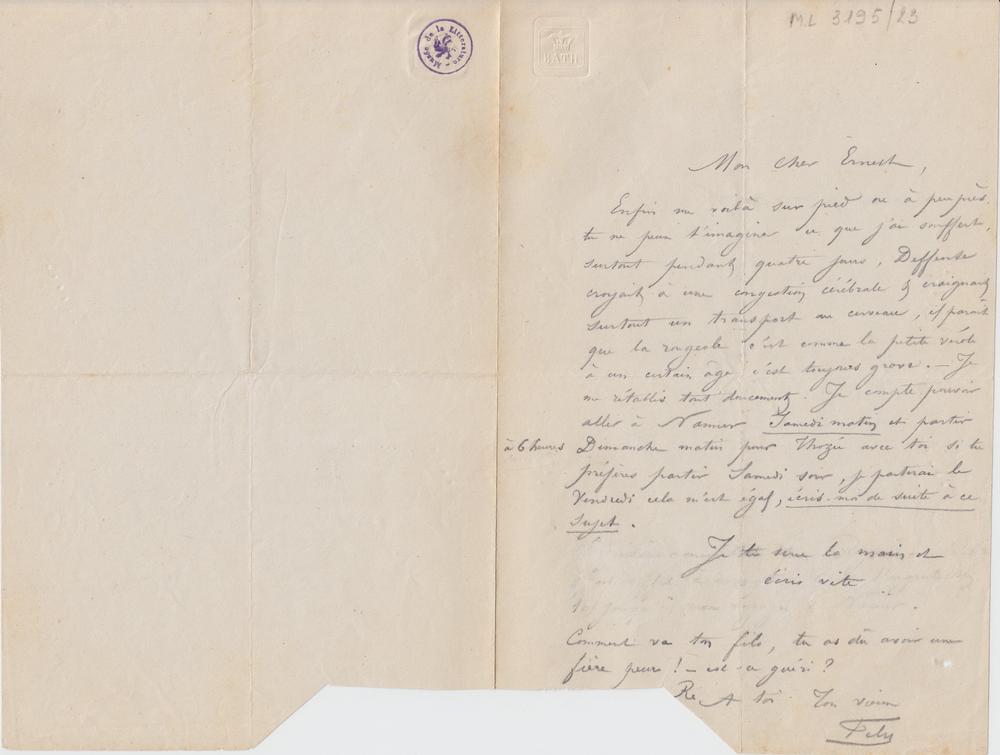 M.L 3195/23
Musée de la Littérature
BATH
Mon cher Ernest,
Enfin me voilà sur pied ou à peu près,
tu ne peux t'imaginer ce que j'ai souffert,
surtout pendant quatre jours, Deffense
croyait à une congestion cérébrale & craignait
surtout un transport au cerveau, il parait
que la rougeole c'est comme la petite vérole
à un certain âge c'est toujours grave. — Je
me rétablis tout doucement. Je compte pouvoir
aller à Namur Samedi matin et partir
à 6 heures Dimanche matin pour Thozée avec toi si tu
préfères partir Samedi soir, je partirai le
Vendredi cela m'est égal, écris-moi de suite à ce
sujet.
Je te serre la main et
écris vite
Comment va ton fils, tu as dû avoir une
fière peur ! — est-ce guéri ?
Re A toi Ton vieux
Fély